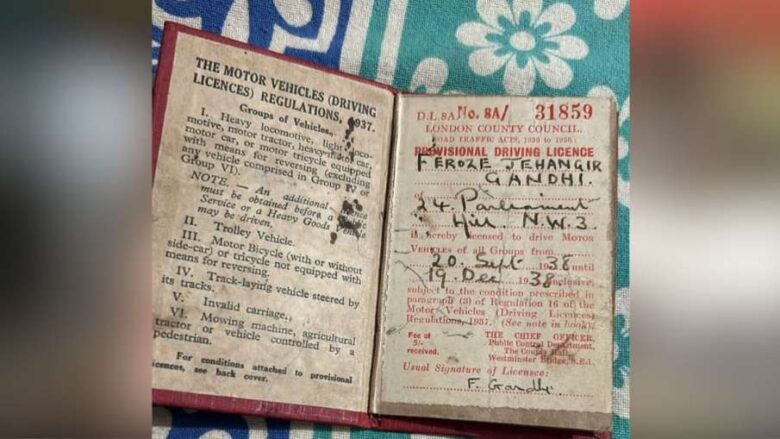 THE MOTOR VEHICLES (DRIVING
LICENCES) REGULATIONS, 1937.
Groups of Vehicles.
I. Heavy locomotive, light loco-
motive, motor tractor, heavy motor car,
motor car, or motor tricycle equipped
with means for reversing (excluding
any vehicle comprised in Group IV or
Group VI).
NOTE. — An additional licence
must be obtained before a Public
Service or a Heavy Goods Vehicle
may be driven.
II. Trolley Vehicle.
III. Motor Bicycle (with or without
side-car) or tricycle not equipped with
means for reversing.
IV. Track-laying vehicle steered by
its tracks.
V. Invalid carriage.
VI. Mowing machine, agricultural
tractor or vehicle controlled by a
pedestrian.
For conditions attached to provisional
licences, see back cover.
D.L.8A No. 8A/ 31859
LONDON COUNTY COUNCIL.
ROAD TRAFFIC ACTS, 1930 to 1936.
PROVISIONAL DRIVING LICENCE
FEROZE JEHANGIR
GANDHI.
of
24. Parliament
Hill. N.W.3.
is hereby licensed to drive MOTOR
VEHICLES of all Groups from
20. Sept 1938 until
19. Dec 1938 inclusive,
subject to the condition prescribed in
paragraph (3) of Regulation 16 of the
Motor Vehicles (Driving Licences)
Regulations, 1937. (See note in book).
Fee of
5/-
received.
THE CHIEF OFFICER,
Public Control Department,
The County Hall,
Westminster Bridge, S.E.1.
Usual Signature of Licensee:
F. Gandhi